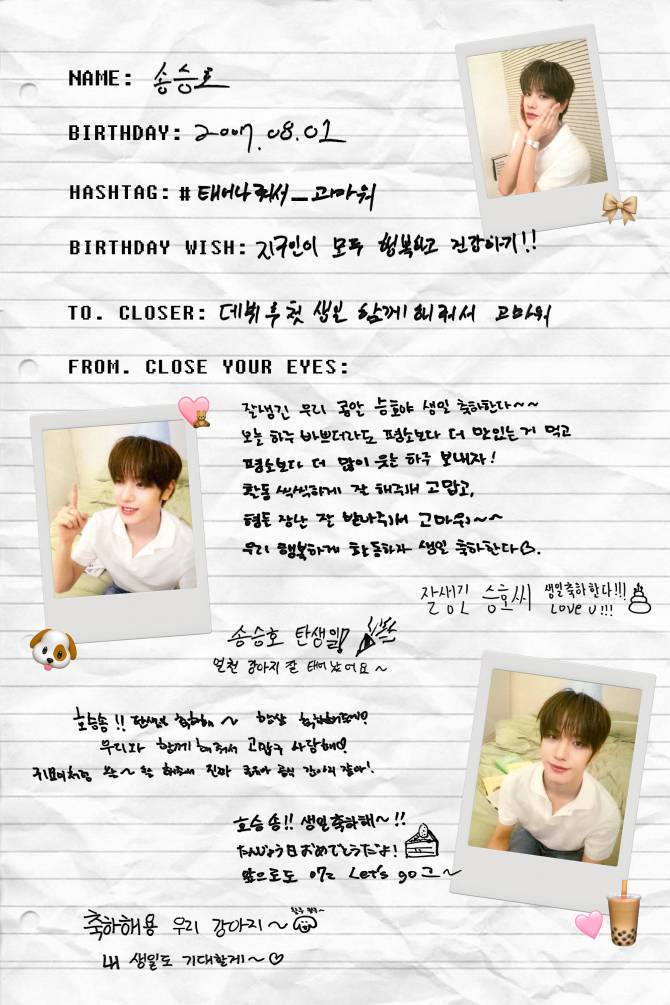 NAME: 송승호
BIRTHDAY: 2007.08.01
HASHTAG: #태어나줘서_고마워
BIRTHDAY WISH: 지구인이 모두 행복하고 건강하기!!
TO. CLOSER: 데뷔 후 첫 생일 함께 해줘서 고마워
FROM. CLOSE YOUR EYES:
잘생긴 우리 승호야 생일 축하한다~~
오늘 하루 바쁘더라도 평소보다 더 맛있는거 먹고
평소보다 더 많이 웃는 하루 보내자!
활동 씩씩하게 잘 해주고 고맙고,
형들 장난 잘 받아줘서 고마워~~
우리 행복하게 활동하자 생일 축하한다♡.
잘생긴 승호씨 생일축하한다!!!
LOVE U!!!
송승호 탄생일!
인천 강아지 잘 태어났어요~
호승송!! 축하해~ 항상
우리와 함께 해줘서 고맙구 사랑해!
호승송!! 생일축하해~!!
たんじょう日おめでとうだよ!
앞으로도 Let's go~
축하해용 우리 강아지~
내 생일도 기대할게~♡